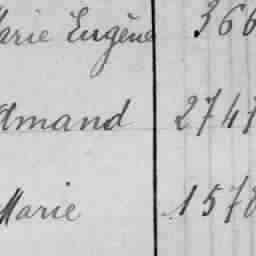 Marie Eugène 366
Amand 2747
Marie 1578